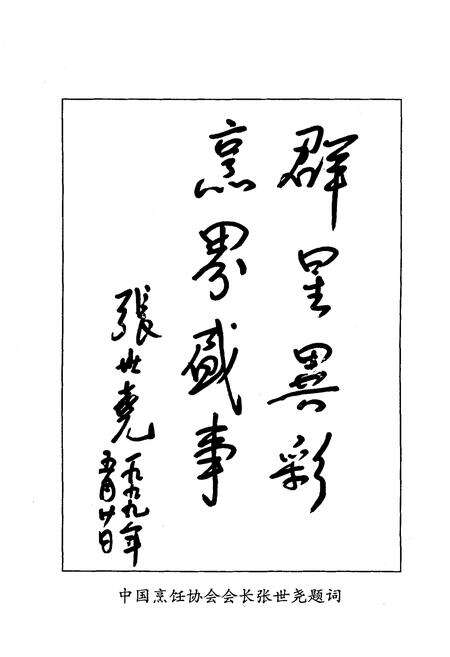 群星異彩
烹界盛事
張世堯
一九九九年
五月廿日
中国烹饪协会会长张世尧题词